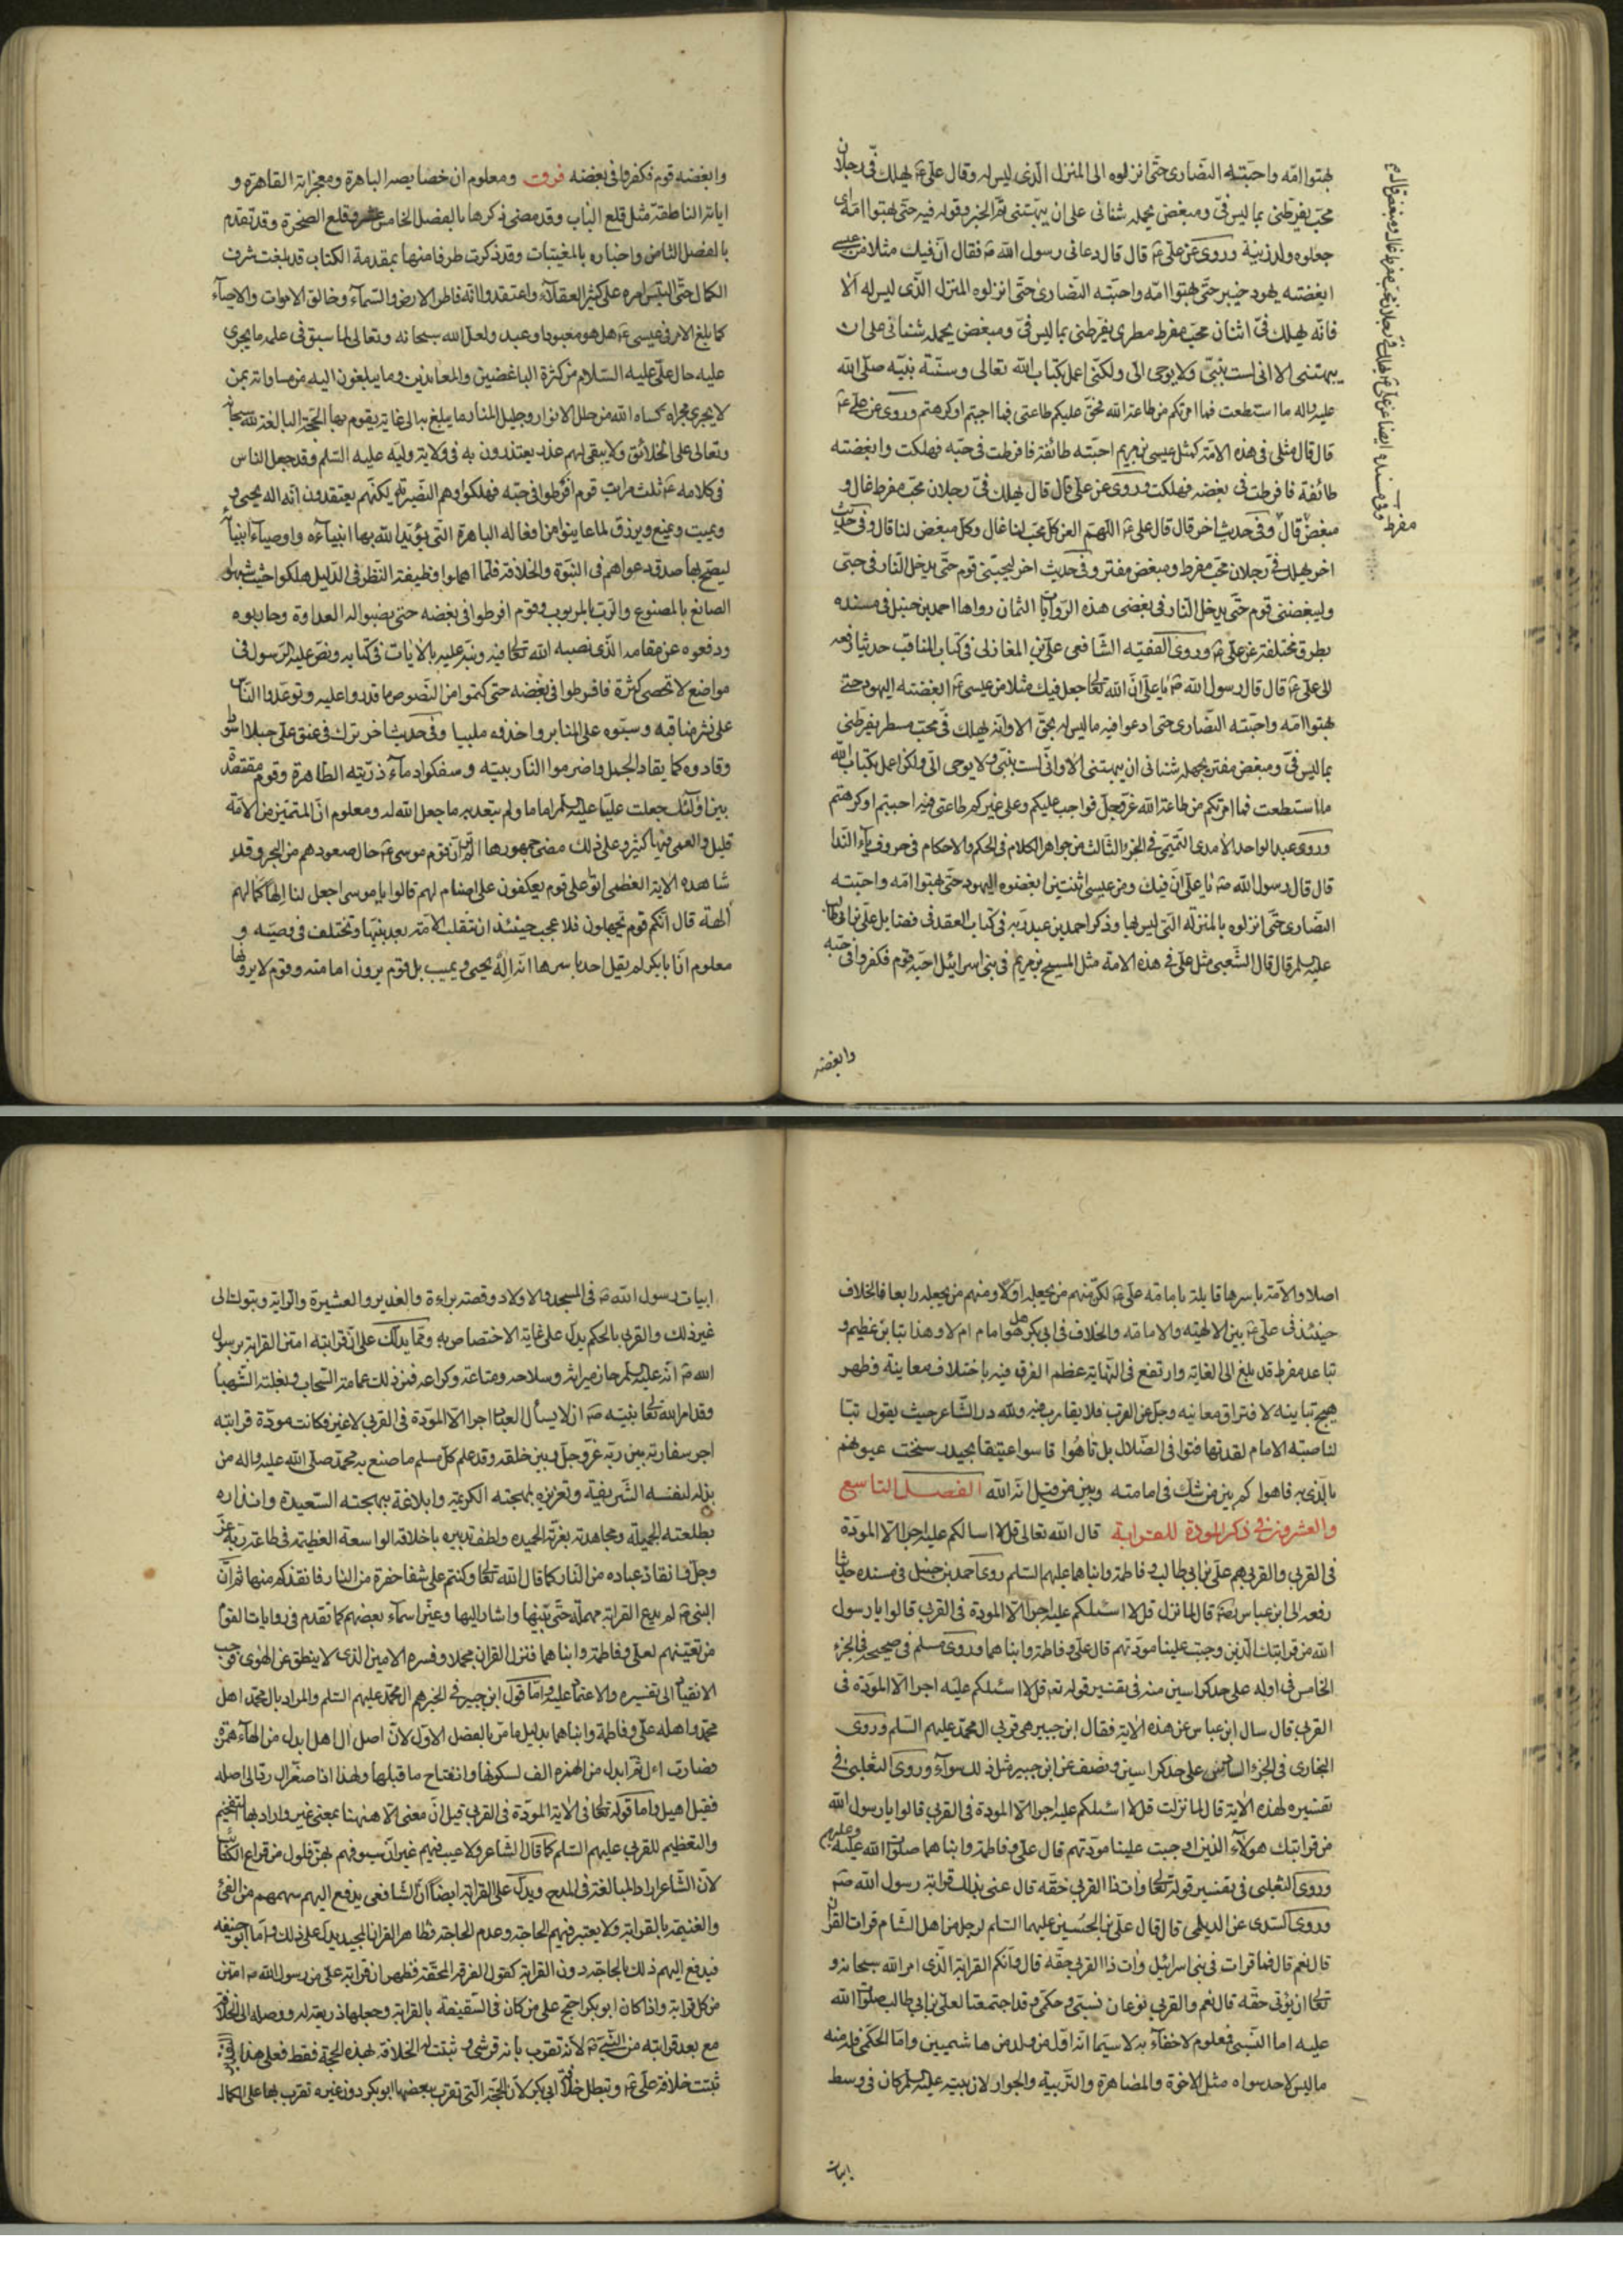 بهتوا امّه واحبّته النصارى حتّى انزلوه الى المنزل الّذى ليس له وقال علىّ ع يهلك فىّ رجلان
محبّ يفرّطنى بما ليس فىّ ومبغض يحمله شنانى على ان يبهتنى
جعلوه ولد زنية وروى عن علىّ ع قال قال دعانى رسول الله ص فقال انّ فيك مثلا من عيسى
ابغضته يهود خيبر حتّى بهتوا امّه واحبّته النصارى حتّى انزلوه المنزله الّذى ليس له الا
فانّه يهلك فىّ اثنان محبّ مفرط مطرى يفرّطنى بما ليس فىّ ومبغض يحمله شنانى على ان
يبهتنى الا انى لست بنبىّ ولا يوحى الىّ ولكنّى اعمل بكتاب الله تعالى وسنّة نبيّه صلّى الله
عليه واله ما استطعت فما امرتكم من طاعة الله فحقّ عليكم طاعتى فيما احببتم او كرهتم وروى عن على ع
قال قال مثلى فى هذه الامّة كمثل عيسى بن مريم احبّته طائفة فافرطت فى حبّه فهلكت وابغضته
طائفة فافرطت فى بغضه فهلكت وروى عن علىّ قال قال يهلك فىّ رجلان محبّ مفرط غال و
مبغض قال وفى حديث اخر قال قال على ع اللهمّ العن كلّ محبّ لنا غال وكلّ مبغض لنا قال وفى حديث
اخر يهلك فىّ رجلان محبّ مفرط ومبغض مفتر وفى حديث اخر ليحبّنى قوم حتّى يدخل النّار فى حبّى
وليبغضنى قوم حتّى يدخل النّار فى بغضى هذه الروايات الثمان رواها احمد بن حنبل فى مسنده
بطرق مختلفة عن علىّ ع وروى الفقيه الشّافعى علىّ بن المغازلى فى كتاب المناقب حديثا رفعه
الى علىّ ع قال قال رسول الله ص يا علىّ انّ الله تعالى جعل فيك مثلا من عيسى ع ابغضته اليهود حتّى
بهتوا امّه واحبّته النّصارى حتى ادعوا فيه ما ليس له بحقّ الا وانّه يهلك فىّ محبّ مسطر يفرّطنى
بما ليس فىّ ومبغض مفتر يحمله شنانى ان يبهتنى الا وانّى لست بنبىّ ولا يوحى الىّ ولكن اعمل بكتاب الله
ما استطعت فما امرتكم من طاعة الله عزّ وجلّ فواجب عليكم وعلى غيركم طاعتى فيه احببتم او كرهتم
وروى عبد الواحد الامدى التّميمى فى الجزء الثالث من جواهر الكلام فى الحكم والاحكام فى حروف ياء النّدا
قال قال رسول الله ص يا علىّ انّ فيك من عيسى اثنتين ابغضوه اليهود حتّى بهتوا امّه واحبّته
النّصارى حتّى انزلوه بالمنزله الّتى ليس لها وذكر احمد بن عبد ربّه فى كتاب العقد فى فضايل على بن ابى طالب
عليه السلم قال قال الشّعبى مثل علىّ فى هذه الامّة مثل المسيح بن مريم فى بنى اسرائيل احبّه قوم فكفروا فى حبّه
وابغضه
مفرط وفى مسنده ايضا عن علىّ ع يهلك فىّ رجلان محبّ مفرط غال ومبغض قال
وابغضه قوم فكفروا فى بغضه فرقت ومعلوم ان خصايصه الباهرة ومعجزاته القاهرة و
اياته الناطقة مثل قلع الباب وقد مضى ذكرها بالفصل الخامس عشر وقلع الصخرة وقد تقدم
بالفصل الثامن واخباره بالمغيّبات وقد ذكرت طرفا منها بمقدمة الكتاب قد بلغت شرف
الكمال حتّى التبس امره على كثير العقلاء واعتقدوا انّه فاطر الارض والسّماء وخالق الاموات والاحياء
كما بلغ الامر فى عيسى ع هل هو معبود او عبد ولعلّ الله سبحانه وتعالى لما سبق فى علمه ما يجرى
عليه حال علىّ عليه السّلام من كثرة الباغضين والمعاندين وما يبلغون اليه من مساواته بمن
لا يجرى مجراه كساه الله من حلل الانوار وجليل المنار ما يبلغ به الى غاية يقوم بها الحجّة البالغة لله سبحانه
وتعالى على الخلائق ولا يبقى لهم عذر يعتذرون به فى ولاية وليّه عليه السّلم وقد جعل الناس
فى كلامه ع ثلث مراتب قوم افرطوا فى حبّه فهلكوا وهم النّصيريّة لكنّهم يعتقدون انّه اله يحيى و
ويميت ويمنع ويرزق لما عاينوا من افعاله الباهرة الّتى يؤيّد الله بها انبيآءه واوصيآء انبيآء
ليصحّ بها صدق دعواهم فى النّبوّة والخلافة فلمّا اهملوا وظيفة النّظر فى الدّليل هلكوا حيث شبهوا
الصانع بالمصنوع والرّب بالمربوب وقوم افرطوا فى بغضه حتى نصبوا له العداوة وحاربوه
ودفعوه عن مقامه الّذى نصبه الله تعالى فيه ونبّه عليه بالايات فى كتابه ونصّ عليه الرّسول فى
مواضع لا تحصى كثرة فافرطوا فى بغضه حتى كتموا من النّصوص ما قدروا عليه وتوعّدوا النّاس
على نشر مناقبه وسبّوه على المنابر واخذوه ملبيا وفى حديث اخر ترك فى عنق علىّ حبلا اسود
وقادوه كما يقاد الجمل واضرموا النار ببيته وسفكوا دمآء ذرّيته الطّاهرة وقوم مقتصدة
بين اولئك جعلت عليّا عليه السلم اماما ولم يتعدّ به ما جعل الله له ومعلوم انّ المتميّز من الامّة
قليل والعمى فيها كثير وعلى ذلك مضى جمهورها الم تر انّ قوم موسى ع حال صعودهم من البحر وقد
شاهده الاية العظمى اتوا على قوم يعكفون على اصنام لهم قالوا يا موسى اجعل لنا الها كما لهم
الهة قال انّكم قوم تجهلون فلا عجب حينئذ ان تنقلب الامّة بعد نبيّها وتختلف فى وصيّه و
معلوم انّ ابا بكر لم يقل احد باسرها انّه اله يحيى ويميت بل قوم يرون امامته وقوم لا يرونها
اصلا والامّة باسرها قايلة بامامة علىّ ع لكن منهم من يجعله اوّلا ومنهم من يجعله رابعا فالخلاف
حينئذ فى علىّ ع بين الالهيّة والامامة والخلاف فى ابى بكر هل هو امام ام لا وهذا تباين عظيم و
تباعد مفرط قد بلغ الى الغاية وارتفع فى النّهاية عظم الفرق فيه باختلاف معاينة وظهر
تباينه لافتراق معانيه وجلّ عن القرب فلا يقارب ولله درّ الشّاعر حيث يقول تبّا
لناصبة الامام لقد تهافتوا فى الضّلال بل تاهوا قاسوا عتيقا بحيدر سخنت عيونهم
بالّذى به فاهوا كم بين من شك فى امامته وبين من قيل انّه الله الفصل التاسع
والعشرون فى ذكر المودة للقرابة قال الله تعالى قل لا اسالكم عليه اجرا الا المودّة
فى القربى والقربى هم علىّ بن ابى طالب وفاطمة وابناهما عليهم السّلم روى احمد بن حنبل فى مسنده حديثا
رفعه الى ابن عباس رضه قال لما نزل قل لا اسئلكم عليه اجرا الا المودة فى القربى قالوا يا رسول
الله من قرابتك الّذين وجبت علينا مودّتهم قال علىّ وفاطمة وابناهما وروى مسلم فى صحيحه فى الجزء
الخامس فى اوله على حدّ كراسين منه فى تفسير قوله تعه قل لا اسئلكم عليه اجرا الا المودّة فى
القربى قال سال ابن عباس عن هذه الاية فقال ابن جبير هى قربى ال محمّد عليهم السّلم وروى
البخارى فى الجزء السادس على حدّ كراسين ونصف عن ابن جبير مثل ذلك سوآء وروى الثعلبى فى
تفسيره لهذه الاية قال لما نزلت قل لا اسئلكم عليه اجرا الا المودة فى القربى قالوا يا رسول الله
من قرابتك هولآء الذين اوجبت علينا مودّتهم قال على وفاطمة وابناهما صلوات الله عليه وعليهم
وروى الثعلبى فى تفسير قوله تعالى وات ذا القربى حقّه قال عنى بذلك قرابة رسول الله ص
وروى السّدى عن الديلمى قال قال علىّ بن الحسين عليهما السّلم لرجل من اهل الشّام قرات القرآن
قال نعم قال فما قرات فى بنى اسرائيل وات ذا القربى حقّه قال وانّكم القرابة الّذى امر الله سبحانه و
تعالى ان يؤتى حقّه قال نعم والقربى نوعان نسبىّ وحكمىّ وقد اجتمعتا لعلى بن ابى طالب صلوات الله
عليه اما النّسبىّ فمعلوم لا خفآء به لا سيّما انّه اوّل من ولد من هاشميين وامّا الحكمىّ فله منه
ما ليس لاحد سواه مثل الاخوة والمصاهرة والتّربية والجوار لان بيته عليه السلم كان فى وسط
ابيات
ابيات رسول الله ص فى المسجد والاولاد وقصة براءة والغدير والعشيرة والراية وتبوك الى
غير ذلك والقربى بالحكم يدلّ على غاية الاختصاص به وممّا يدلّك على انّ قرابته امتن القرابة برسول
الله ص انّه عليه السلم حاز ميراثه وسلاحه ومتاعه وكراعه فمن ذلك عمامته السّحاب وبغلته الشّهبا
وقد امر الله تعالى نبيّه ص ان لا يسأل العباد اجرا الا المودّة فى القربى لا غير فكانت مودّة قرابته
اجر سفارته بين ربّه عزّ وجلّ وبين خلقه وقد علم كلّ مسلم ما صنع به محمّد صلّى الله عليه واله من
بذله لنفسه الشّريفة وتعزيزه بمهجته الكريمة وابلاغه ببهجته السّعيدة وانذاره
بطلعته الجميلة ومجاهدته بغرّته الحميده ولطف تدبيره باخلاقه الواسعة العظيمة فى طاعة ربّه عزّ
وجلّ وانقاذ عباده من النّار كما قال الله تعالى وكنتم على شفا حفرة من النار فانقذكم منها ثم انّ
النبى ص لم يدع القرابة مهملة حتّى بيّنها واشار اليها وعيّن اسمآء بعضهم كما تقدم فى روايات القوم
من تعيينهم لعلى وفاطمة وابناهما فنزل القران مجملا وفسّره الامين الذى لا ينطق عن الهوى فوجب
الانقياد الى تفسيره والاعتماد عليه وامّا قول ابن جبير فى الخبر هم ال محمّد عليهم السّلم والمراد بال محمّد اهل
محمّد واهله علىّ وفاطمة وابناهما بدليل ما مرّ بالفصل الاوّل لانّ اصل ال اهل ابدل من الهآء همزة
فصارت اءل ثم ابدل من الهمزه الف لسكونها وانفتاح ما قبلها ولهذا اذا صغّر ال ردّ الى اصله
فقيل اهيل وامّا قوله تعالى فى الاية المودّة فى القربى قيل انّ معنى الا هيهنا بمعنى غير واراد بها التفخيم
والتعظيم للقربى عليهم السّلم كما قال الشّاعر ولا عيب فيهم غير انّ سيوفهم بهنّ فلول من قراع الكتائب
لانّ الشّاعر اراد المبالغة فى المدح ويدلّ على القرابة ايضا انّ الشّافعى يدفع اليهم سهمهم من الفئ
والغنيمة بالقرابة ولا يعتبر فيهم الحاجة وعدم الحاجة وظاهر القران المجيد يدلّ على ذلك وامّا ابو حنيفه
فيدفع اليهم ذلك بالحاجة دون القرابة كقول الفرقة المحقّة فظهر ان قرابة علىّ من رسول الله ص امتن
من كلّ قرابة واذا كان ابو بكر احتج على من كان فى السّقيفة بالقرابة وجعلها ذريعة له ووصله الى الخلافة
مع بعد قرابته من النّبى ص لانّه تقرّب بانه قرشى وثبتت له الخلافة لهذه الحجّة فقط فعلى هذا
ثبتت خلافة علىّ ع وتبطل خلافة ابى بكر لان الحجّة الّتى تقرّب ببعضها ابو بكر دون غيره تقرّب بها على الكمال